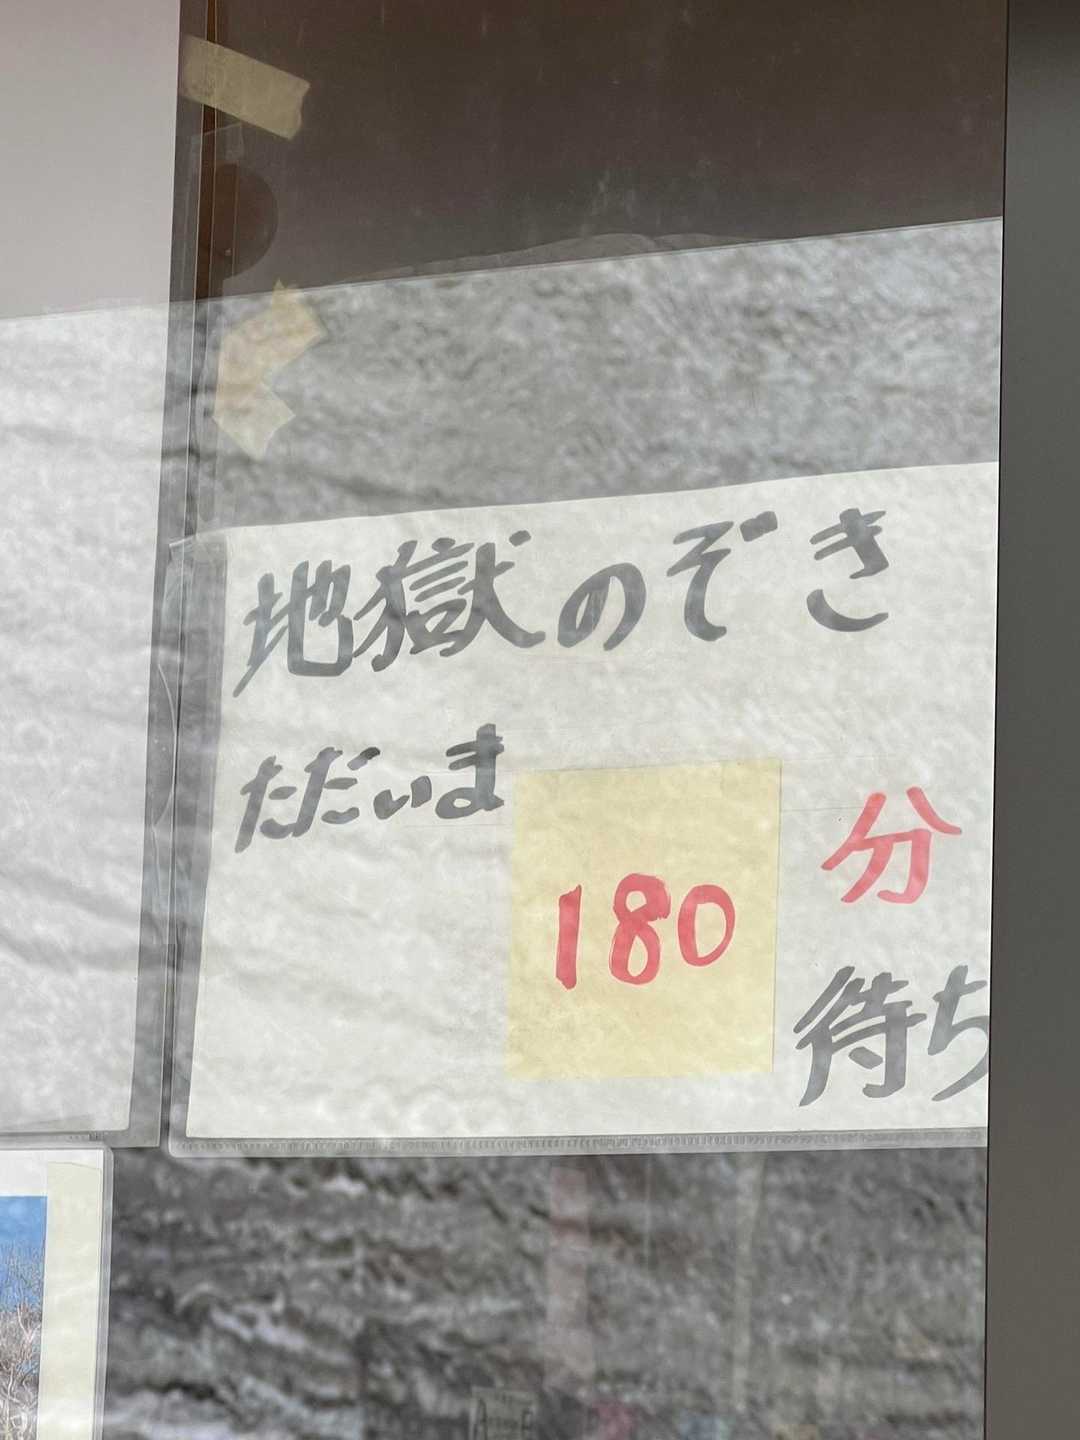 地獄のぞき
ただいま
180
分
待ち